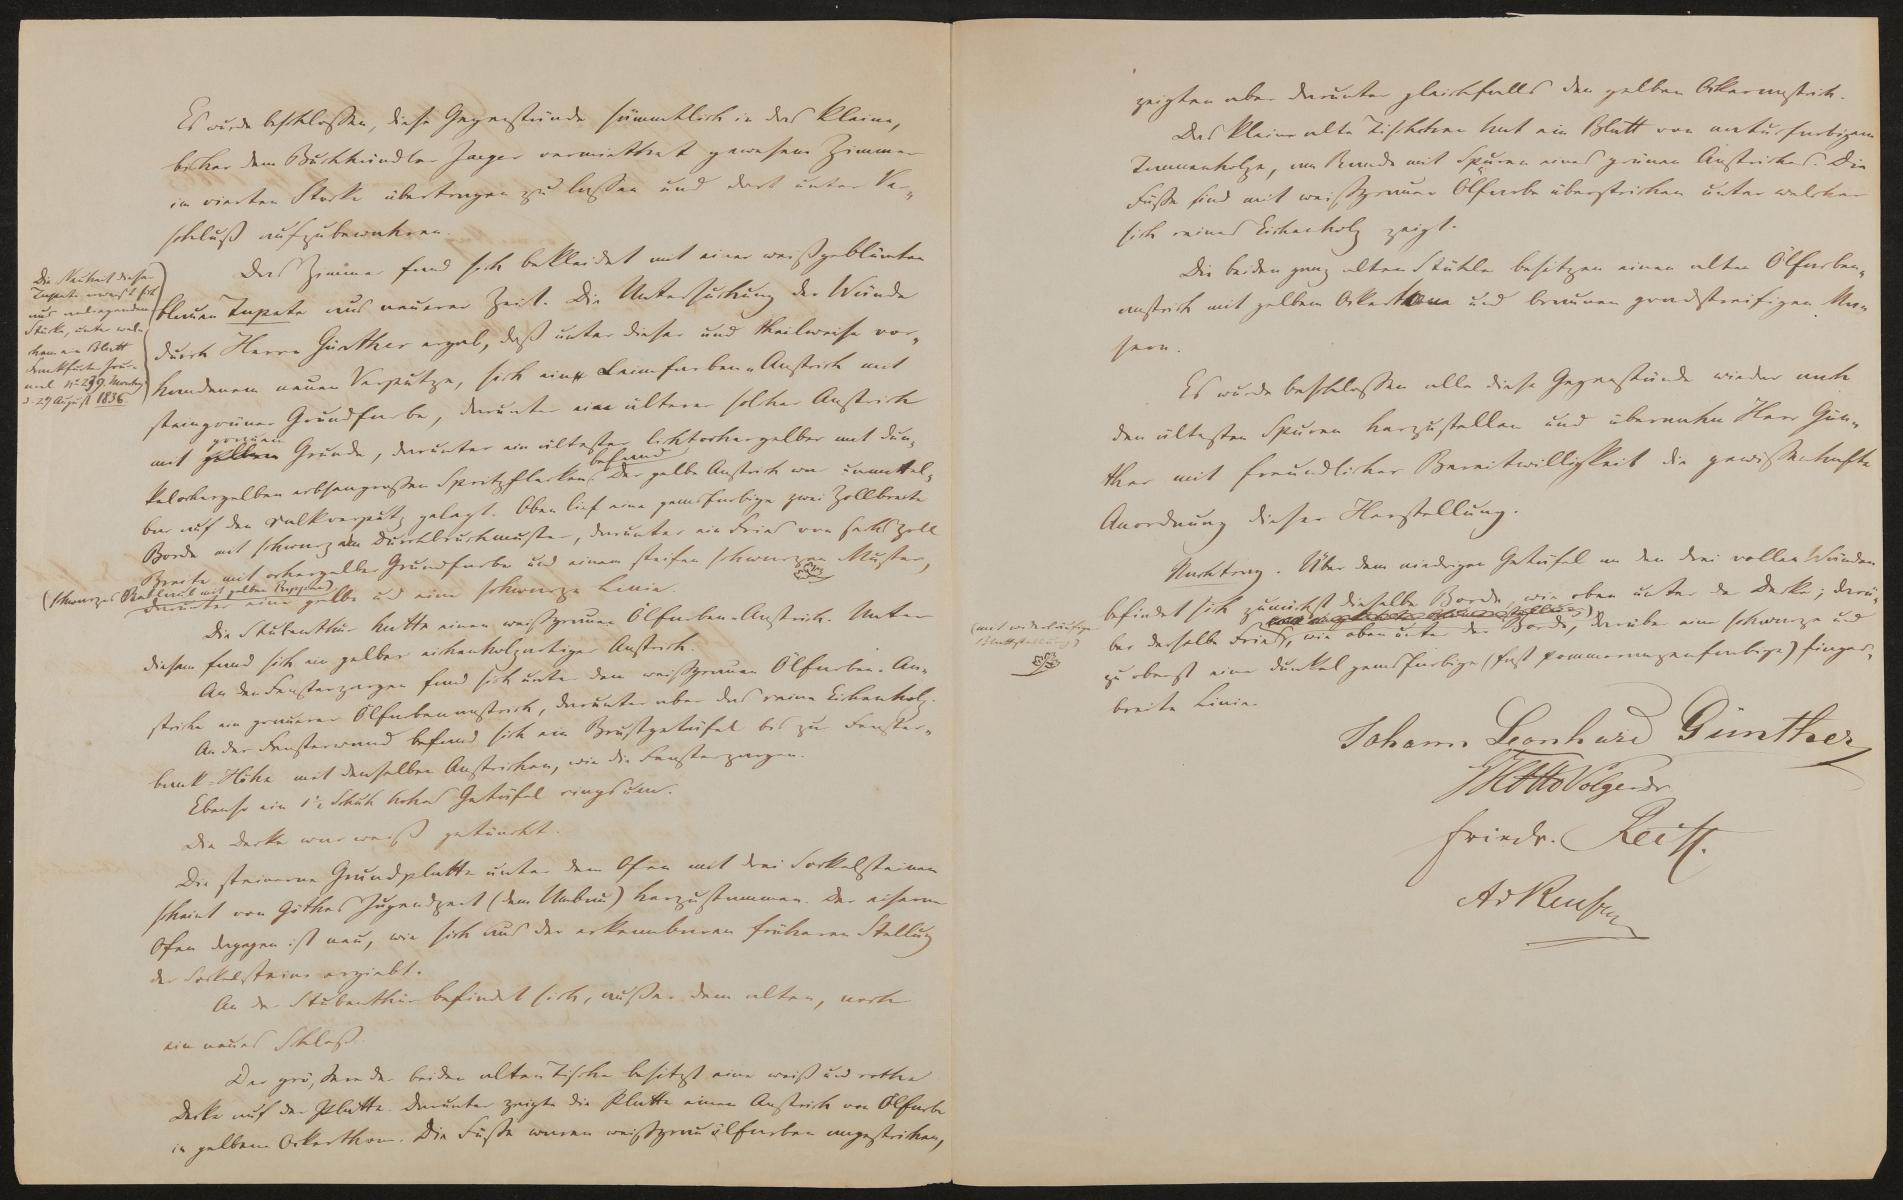 Es wurde beschlossen, diese Gegenstände sämmtlich in das kleine,
bisher dem Buchhändler Jaeger vermiethet gewesene Zimmer
im vierten Stocke übertragen zu lassen und dort unter Ver-
schluß aufzubewahren.
Das Zimmer fand sich bekleidet mit einer weißgeblümten
blauen Tapete aus neuerer Zeit. Die Untersuchung der Wände
durch Herrn Günther ergab, daß unter dieser und theilweise vor-
handenem neuen Verputze, sich ein Leimfarben-Anstrich mit
steingrüner Grundfarbe, darunter ein älterer solcher Anstrich
mit gelbem grauen Grunde, darunter ein ältester lichtockergelber mit dun-
kelockergelben erbsengroßen Spritzflecken befand. Der gelbe Anstrich war unmittel-
bar auf den Kalkverputz gelegt. Oben lief eine gemsfarbige zwei Zollbreite
Borde mit schwarzem Durchbruchmuster, darunter ein Fries von sechs Zoll
Breite mit ockergelber Grundfarbe und einem steifen schwarzen Muster,
(schwarzes Blatt mit gelben Rippen)
darunter eine gelbe und eine schwarze Linie.
Die Stubenthür hatte einen weißgrauen Ölfarben-Anstrich. Unter
diesem fand sich ein gelber eichenholzartiger Anstrich.
An den Fensterzargen fand sich unter dem weißgrauen Ölfarben-An-
striche ein grauerer Ölfarbenanstrich, darunter aber das reine Eichenholz.
An der Fensterwand befand sich ein Brustgetäfel bis zur Fenster-
bank-Höhe mit denselben Anstrichen, wie die Fensterzargen.
Ebenso ein 1½ Schuh hohes Getäfel ringsum.
Die Decke war weiß getüncht.
Die steinerne Grundplatte unter dem Ofen mit drei Sockelsteinen
scheint von Göthes Jugendzeit (dem Umbau) herzustammen. Der eiserne
Ofen dagegen ist neu, wie sich aus der erkennbaren früheren Stellung
der Sockelsteine ergiebt.
An der Stubenthür befindet sich, außer dem alten, noch
ein neues Schloß.
Der grössere der beiden alten Tische besitzt eine weiß und rothe
Decke auf der Platte. Darunter zeigte die Platte einen Anstrich von Ölfarbe
in gelbem Ockerthon. Die Füße waren weißgrau ölfarben angestrichen,
Die Neuheit dieser
Tapete erweist sich
aus anliegendem
Stücke, unter wel-
chem ein Blatt
Frankfurter Jour-
nal No 239. Montag
d. 29 August 1836
zeigten aber darunter gleichfalls den gelben Ockeranstrich.
Das kleine alte Tischchen hat ein Blatt von naturfarbigem
Tannenholze, am Rande mit Spuren eines grünen Anstriches. Die
Füße sind mit weißgrauer Ölfarbe überstrichen unter welcher
sich reines Eichenholz zeigt.
Die beiden ganz alten Stühle besitzen einen alten Ölfarben-
anstrich mit gelbem Ockerthone und braunen gradstreifigen Ma-
sern.
Es wurde beschlossen alle diese Gegenstände wieder nach
den ältesten Spuren herzustellen und übernahm Herr Gün-
ther mit freundlicher Bereitwilligkeit die gewissenhafte
Anordnung dieser Herstellung.
Nachtrag. Über dem niedrigen Getäfel an den drei vollen Wänden
befindet sich zunächst dieselbe Borde, wie oben unter der Decke; darü-
ber derselbe Fries, wie oben unter der Borde, darüber eine schwarze und
zu oberst eine dunkel gemsfarbige (fast pommeranzenfarbige) finger-
breite Linie.
(mit
Blattstellung)
Johann Leonhard Günther
GH Otto Volger Dr
Friedr. Reiff.